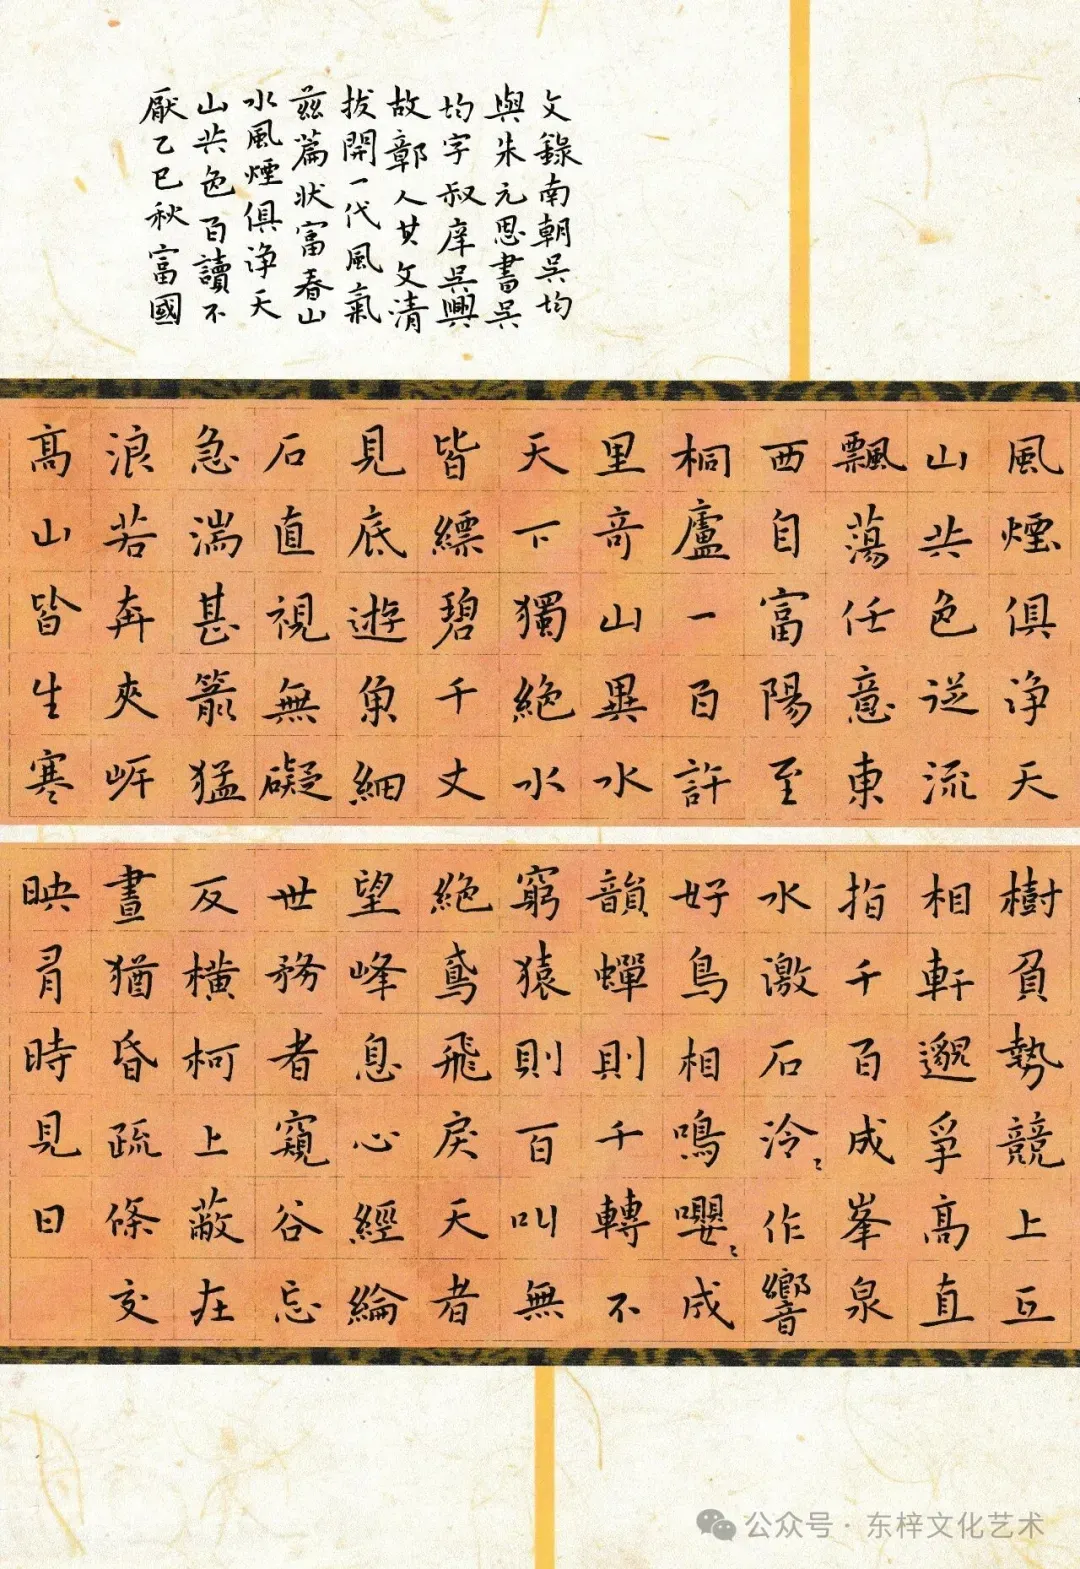 文錄南朝吳均
與朱元思書吳
均字叔庠吳興
故鄣人其文清
拔開一代風氣
茲篇狀富春山
水風煙俱淨天
山共色百讀不
厭乙巳秋富國
風煙俱淨天
山共色從流
飄蕩任意東
西自富陽至
桐廬一百許
里奇山異水
天下獨絕水
皆縹碧千丈
見底遊魚細
石直視無礙
急湍甚箭猛
浪若奔夾岸
高山皆生寒
樹負勢競上互
相軒邈爭高直
指千百成峯泉
水激石泠〻作響
好鳥相鳴嚶〻成
韻蟬則千轉不
窮猿則百叫無
絕鳶飛戾天者
望峰息心經綸
世務者窺谷忘
反橫柯上蔽在
晝猶昏疏條交
映有時見日
公众号·东梓文化艺术